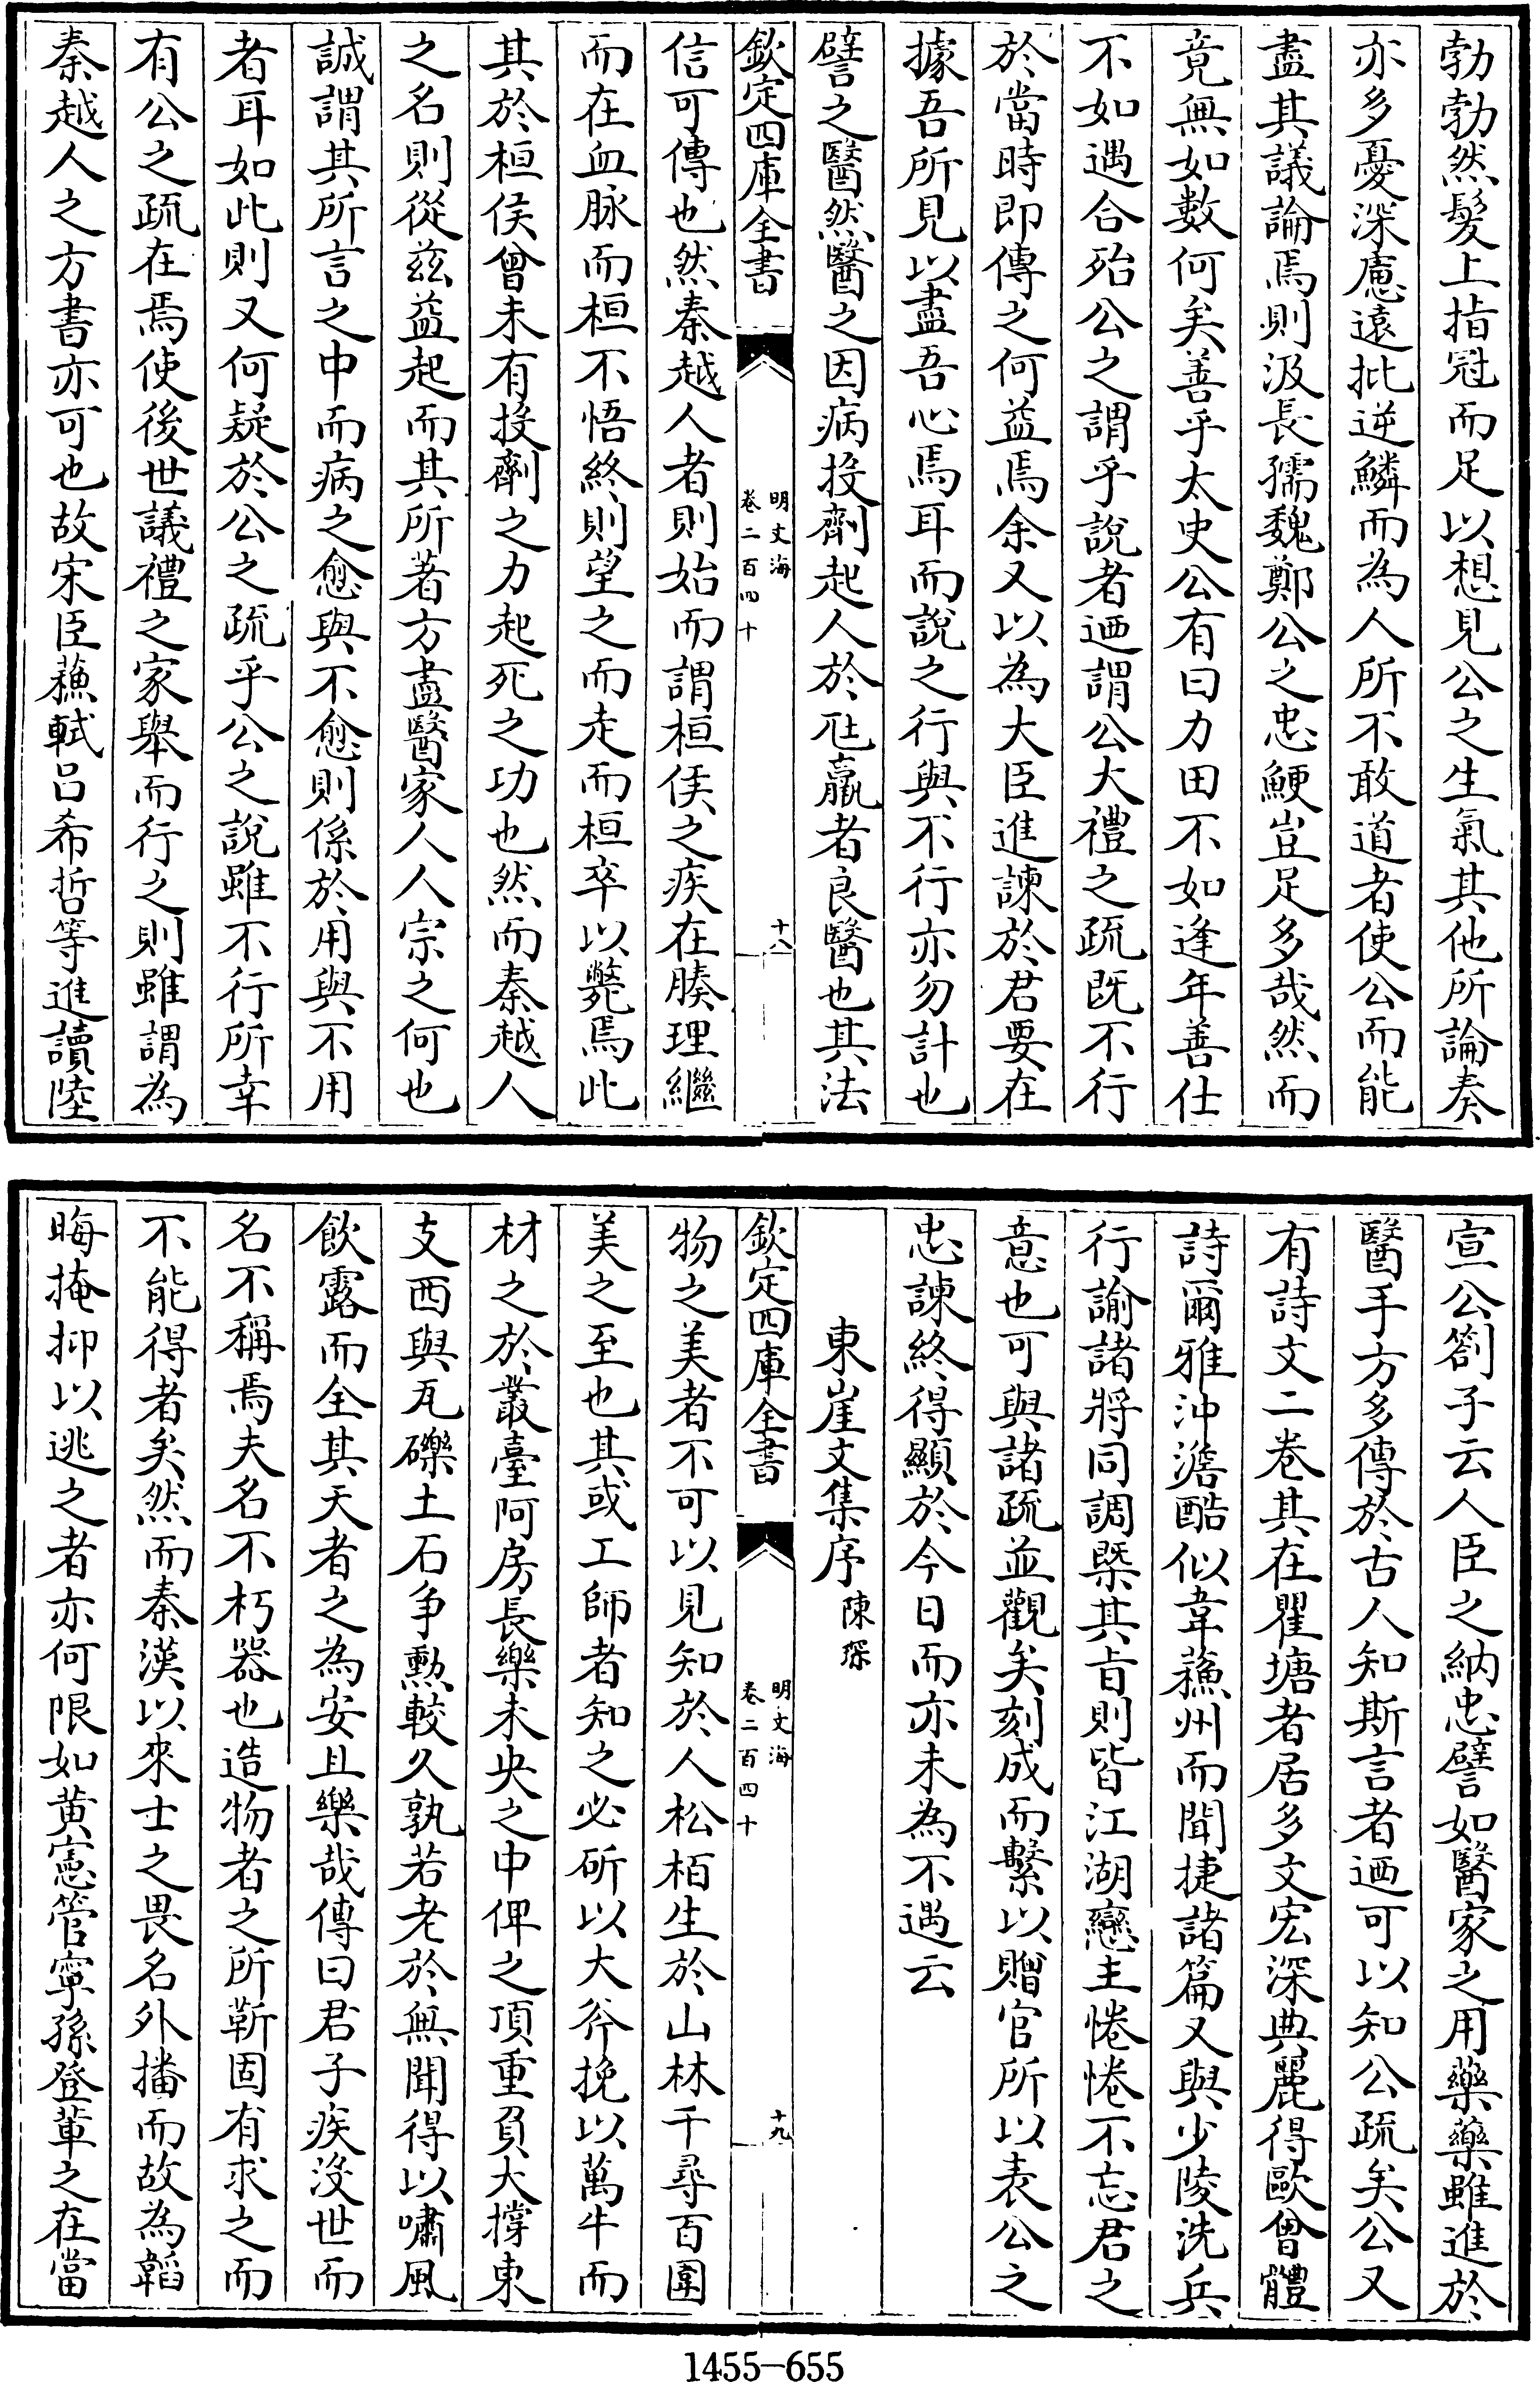 勃勃然髮上指冠而足以想見公之生氣其他所論奏
亦多憂深慮遠批逆鱗而為人所不敢道者使公而能
盡其議論焉則汲長孺魏鄭公之忠鯁豈足多哉然而
竟無如數何矣善乎太史公有曰力田不如逢年善仕
不如遇合殆公之謂乎說者迺謂公大禮之疏既不行
於當時即傳之何益焉余又以為大臣進諫於君要在
據吾所見以盡吾心焉耳而說之行與不行亦勿計也
譬之醫然醫之因病投劑起人於尫羸者良醫也其法
欽定四庫全書
明文海
卷二百四十
十八
信可傳也然秦越人者則始而謂桓侯之疾在腠理繼
而在血脉而桓不悟終則望之而走而桓卒以斃焉此
其於桓侯曾未有投劑之力起死之功也然而秦越人
之名則從兹益起而其所著方盡醫家人人宗之何也
誠謂其所言之中而病之愈與不愈則係於用與不用
者耳如此則又何疑於公之疏乎公之說雖不行所幸
有公之疏在焉使後世議禮之家舉而行之則雖謂為
秦越人之方書亦可也故宋臣蘇軾吕希哲等進讀陸
宣公劄子云人臣之納忠譬如醫家之用藥藥雖進於
醫手方多傳於古人知斯言者迺可以知公疏矣公又
有詩文二卷其在瞿塘者居多文宏深典麗得歐曾體
詩爾雅沖澹酷似韋蘇州而聞捷諸篇又與少陵洗兵
行諭諸將同調槩其㫖則皆江湖戀主惓惓不忘君之
意也可與諸疏並觀矣刻成而繫以贈官所以表公之
忠諫終得顯於今日而亦未為不遇云
東崖文集序 陳琛
欽定四庫全書
明文海
卷二百四十
十九
物之美者不可以見知於人松栢生於山林千尋百圍
美之至也其或工師者知之必斫以大斧挽以萬牛而
材之於叢臺阿房長樂未央之中俾之項重負大撐東
支西與瓦礫土石争勲較久孰若老於無聞得以嘯風
飲露而全其天者之為安且樂哉傳曰君子疾没世而
名不稱焉夫名不朽器也造物者之所靳固有求之而
不能得者矣然而秦漢以來士之畏名外播而故為韜
晦掩抑以逃之者亦何限如黄憲管寧孫登輩之在當
1455-655